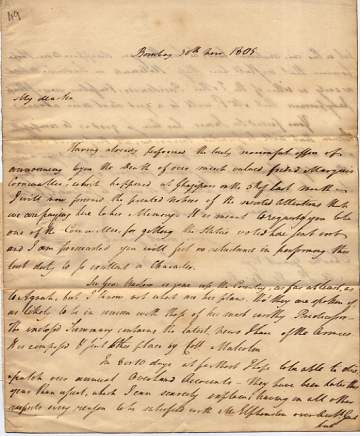 49
Bombay 30th Novr 1805
My dear Sir
Having already performed the truly mournful office of
announcing to you the Death of our much valued friend Marquis
Cornwallis, which happened at on the 5th of last month
I will now forward the printed notices of the several attentions that
we are paying here to his Memory. It is meant to request you to be
one of the Committee, for getting the Statue voted here first cost
and I am persuaded you will feel no reluctance in performing this
last duty to so excellent a Character.
Sir Geo: Barlow is gone up the Country, as far at least, as
to Agrah, but I know not what are his plans. But they are spoken of
as likely to be in unison with those of his most worthy Predecessor.
The inclosed Summary contains the latest news of the Armies
It is composed & sent to this place by Colo Malcolm
In 8 or 10 days at farthest I hope to be able to dis
patch our annual Overland Accounts. They have been later this
year than usual, which I can scarcely explain, having in all other
respects every reason to be satisfied with Mr Elphinston our Acct Genl
and